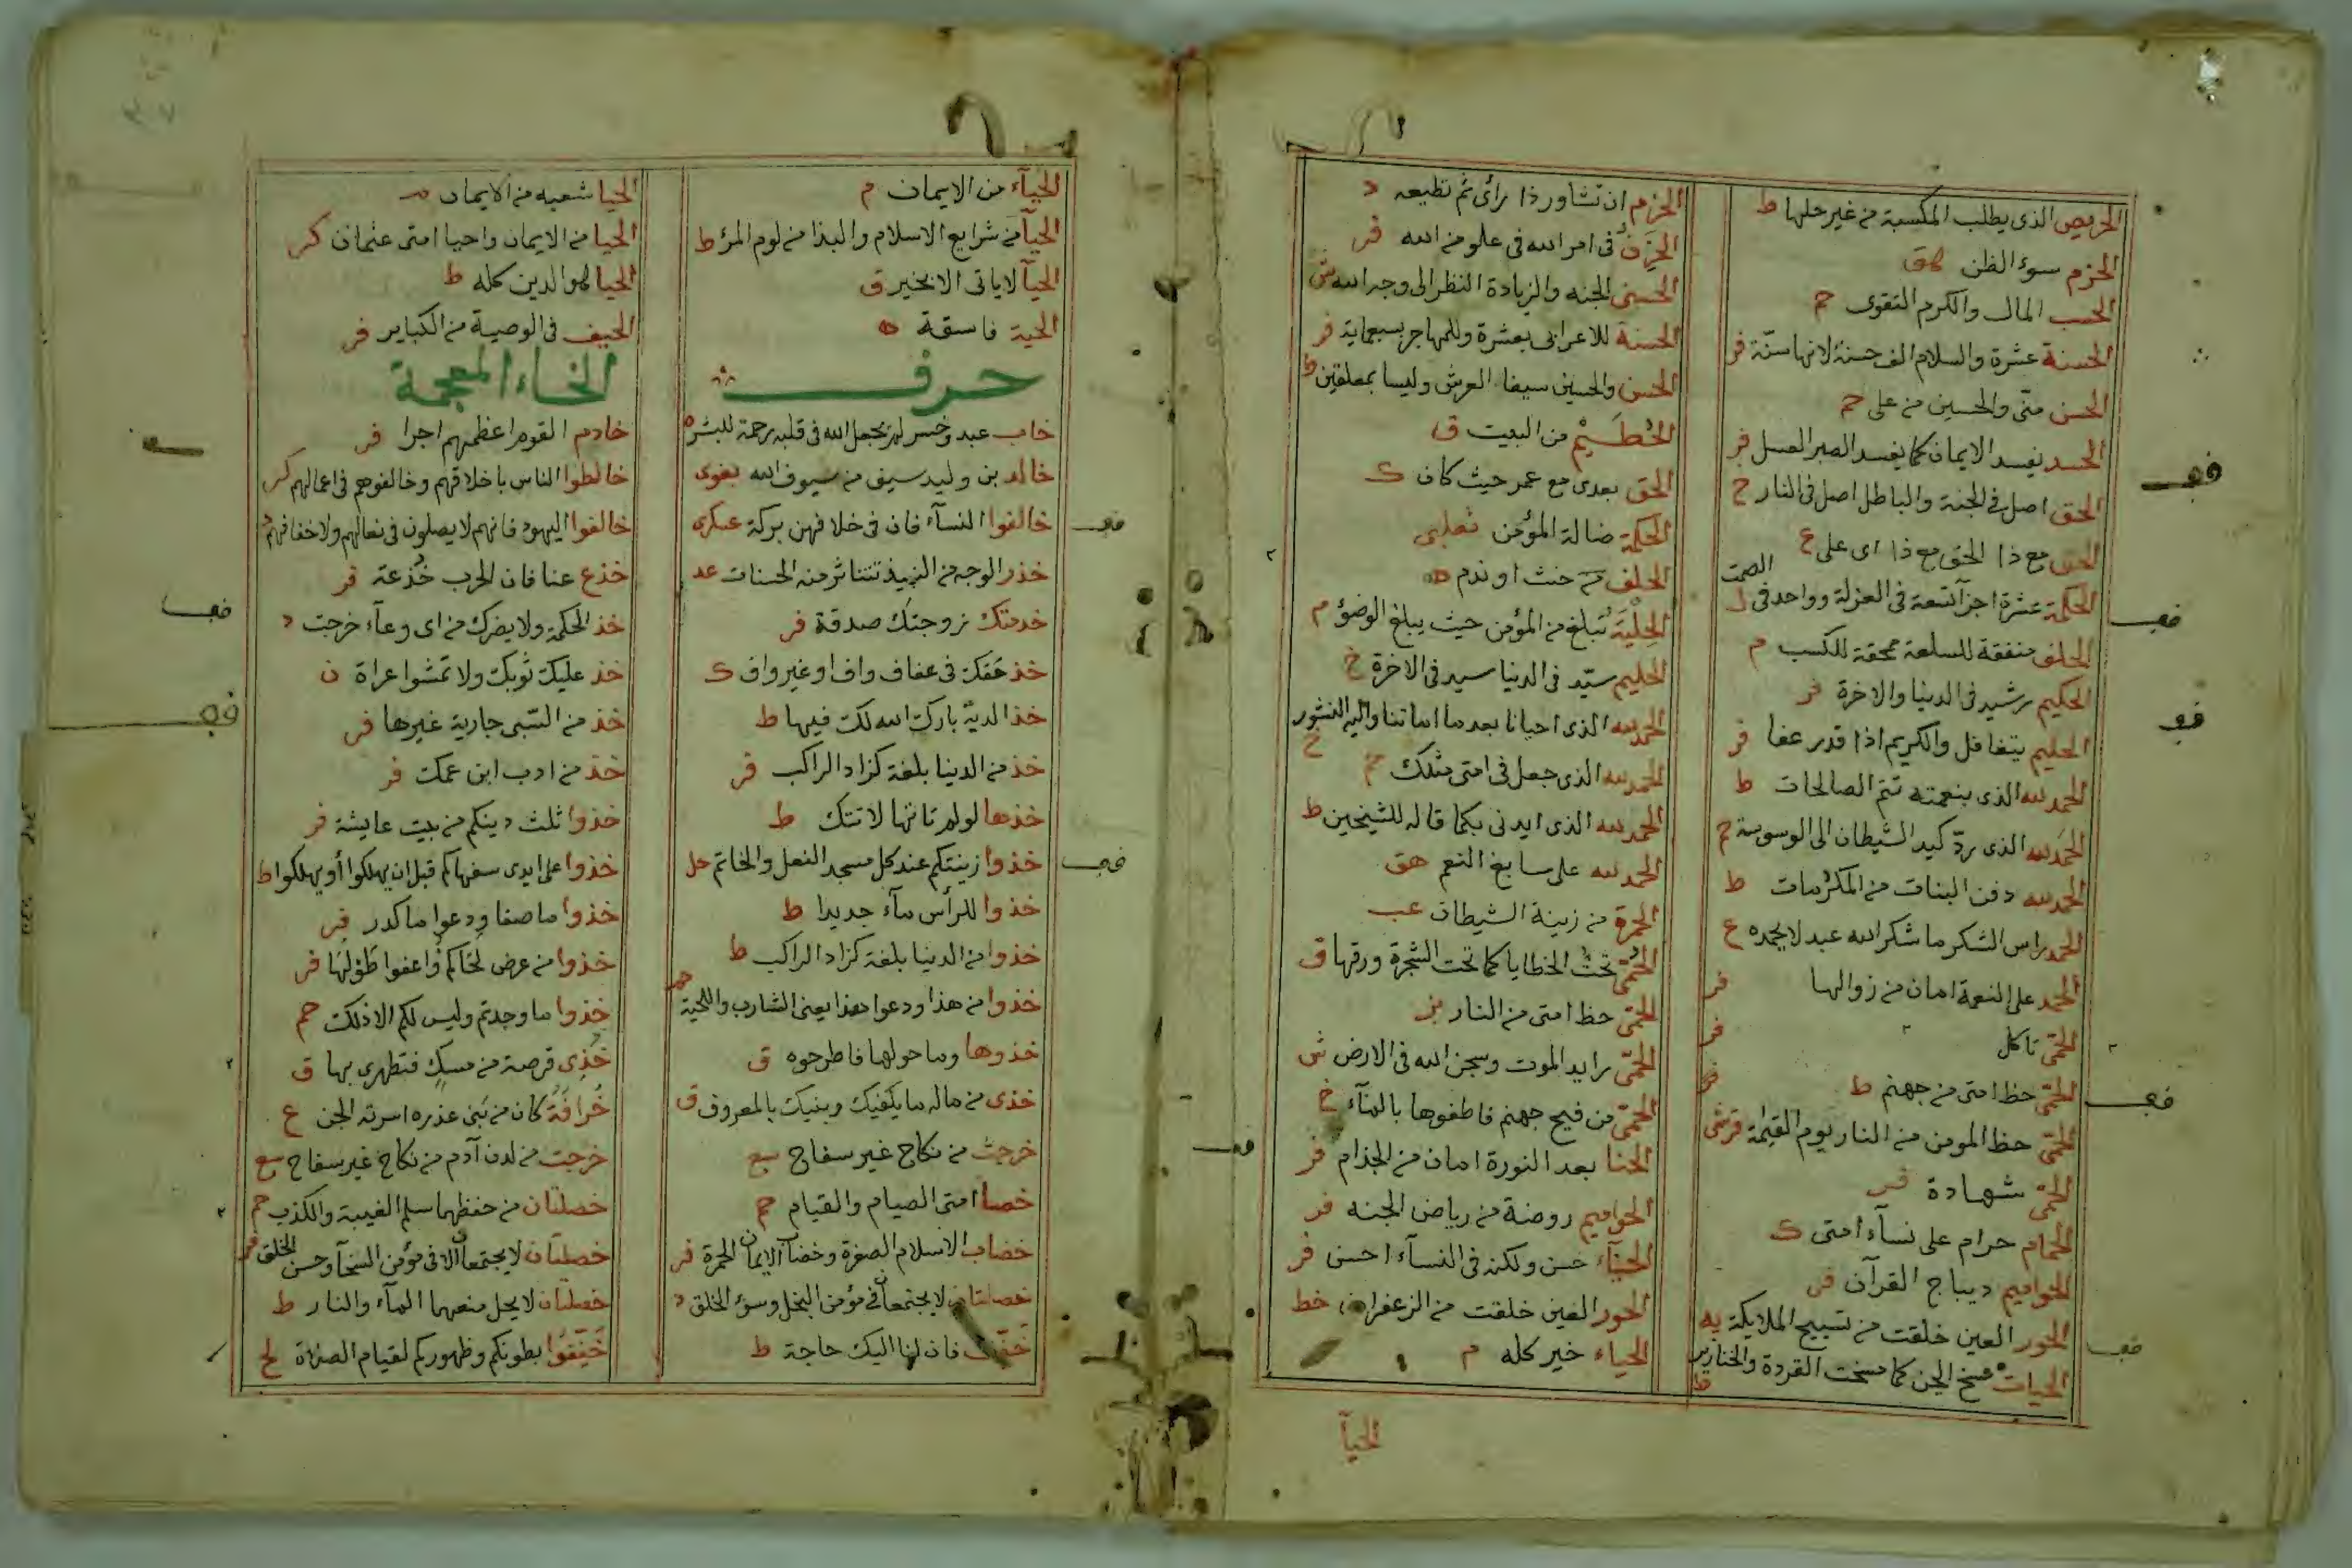 الحريص الذى يطلب المكسبة من غير حلها ط
الحزم سوء الظن هق
الحسب المال والكرم التقوى حم
الحسنة عشرة والسلام الف حسنة لانها سنة فر
الحسن منى والحسين من على حم
الحسد يفسد الايمان كما يفسد الصبر العسل فر
الحق اصل فى الجنة والباطل اصل فى النار خ
الحق مع ذا الحق مع ذا اى على ع
الحكمة عشرة اجزآ تسعة فى العزلة وواحد فى الصمت ل
الحلف منفقة للسلعة ممحقة للكسب م
الحكيم رشيد فى الدنيا والاخرة فر
الحليم يتغافل والكريم اذا قدر عفا فر
الحمد لله الذى بنعمته تتم الصالحات ط
الحمد لله الذى رد كيد الشيطان الى الوسوسة حم
الحمد لله دفن البنات من المكرمات ط
الحمد راس الشكر ما شكر الله عبد لا يحمده ع
الحمد على النعمة امان من زوالها فر
الحمى تاكل فر
الحمى حظ امتى من جهنم ط
الحمى حظ المومن من النار يوم القيمة
الحمى شهادة فر
الحمام حرام على نسآء امتى ك
الحواميم ديباج القرآن فر
الحور العين خلقت من تسبيح الملايكة يه
الحيات مسخ الجن كما مسخت القردة والخنازير ط
الحزم ان تشاور ذا رأى ثم تطيعه د
فى امر الله فى علو من الله فر
الحسنى الجنه والزيادة النظر الى وجه الله ش
الحسنة للاعرابى بعشرة وللمهاجر بسبعماية فر
الحسن والحسين سيفا العرش وليسا بمعلقين ط
الحطيم من البيت ق
الحق بعدى مع عمر حيث كان ك
الحكمة ضالة المؤمن ثعلبى
الحلف حنث او ندم ه
الحلية تبلغ من المؤمن حيث يبلغ الوضوء م
الحليم سيد فى الدنيا سيد فى الاخرة خ
الحمد لله الذى احيانا بعد ما اماتنا واليه النشور خ
الحمد لله الذى جعل فى امتى مثلك حم
الحمد لله الذى ايدنى بكما قاله للشيخين ط
الحمد لله على سابغ النعم هق
الحمرة من زينة الشيطان عب
الحمى تحت الخطايا كما تحت الشجرة ورقها ق
الحمى حظ امتى من النار بز
الحمى رايد الموت وسجن الله فى الارض ش
الحمى من فيح جهنم فاطفوها بالمآء خ
الحنا بعد النورة امان من الجذام فر
الحواميم روضة من رياض الجنه فر
الحيآء حسن ولكنه فى النسآء احسن فر
الحور العين خلقت من الزعفران خط
الحياء خير كله م
الحيآ
الحيآء من الايمان م
الحيآ من شرايع الاسلام والبذا من لوم المرء ط
الحيآ لا ياتى الا بخير ق
الحية فاسقة ه
حرف
خاب عبد وخسر لم يجعل الله فى قلبه رحمة للبشر
خالد بن وليد سيف من سيوف الله بغوى
خالفوا النسآء فان فى خلافهن بركة عسكرى
خدر الوجه من النبيذ تتناثر منه الحسنات عد
خدمتك زوجتك صدقة فر
خذ حقك فى عفاف واف او غير واف ك
خذ الدية بارك الله لك فيها ط
خذ من الدنيا بلغة كزاد الراكب فر
خذها لو لم تاتها لاتتك ط
خذوا زينتكم عند كل مسجد النعل والخاتم حل
خذوا للرأس مآء جديدا ط
خذوا من الدنيا بلغة كزاد الراكب ط
خذوا من هذا ودعوا هذا يعنى الشارب واللحية حم
خذوها وما حولها فاطرحوه ق
خذى من ماله ما يكفيك وبنيك بالمعروف ق
خرجت من نكاح غير سفاح سع
خصا امتى الصيام والقيام حم
خضاب الاسلام الصفرة وخضاب الايمان الحمرة فر
خصلتان لا يجتمعان فى مؤمن البخل وسوء الخلق د
فان لنا اليك حاجة ط
الحيا شعبه من الايمان
الحيا من الايمان واحيا امتى عثمان كر
الحيا هو الدين كله ط
الحيف فى الوصية من الكباير فر
الخاء المعجمة
خادم القوم اعظمهم اجرا فر
خالطوا الناس باخلاقهم وخالفوهم فى اعمالهم كر
خالفوا اليهود فانهم لا يصلون فى نعالهم ولا خفافهم د
خذع عنا فان الحرب خدعة فر
خذ الحكمة ولا يضرك من اى وعآء خرجت د
خذ عليك ثوبك ولا تمشوا عراة ن
خذ من السبى جارية غيرها فر
خذ من ادب ابن عمك فر
خذوا ثلث دينكم من بيت عايشة فر
خذوا على ايدى سفهاكم قبل ان يهلكوا أو يهلكوا ط
خذوا ما صفا ودعوا ما كدر فر
خذوا من عرض لحاكم واعفوا طولها فر
خذوا ما وجدتم وليس لكم الا ذلك حم
خذى فرصة من مسك فتطهرى بها ق
خرافة كان من بنى عذره اسرته الجن ع
خرجت من لدن آدم من نكاح غير سفاح سع
خصلتان من حفظهما سلم الغيبة والكذب حم
خصلتان لا يجتمعان الا فى مؤمن السخآ وحسن الخلق فر
خصلتان لا يحل منعهما المآء والنار ط
خففوا بطونكم وظهوركم لقيام الصلاة لح